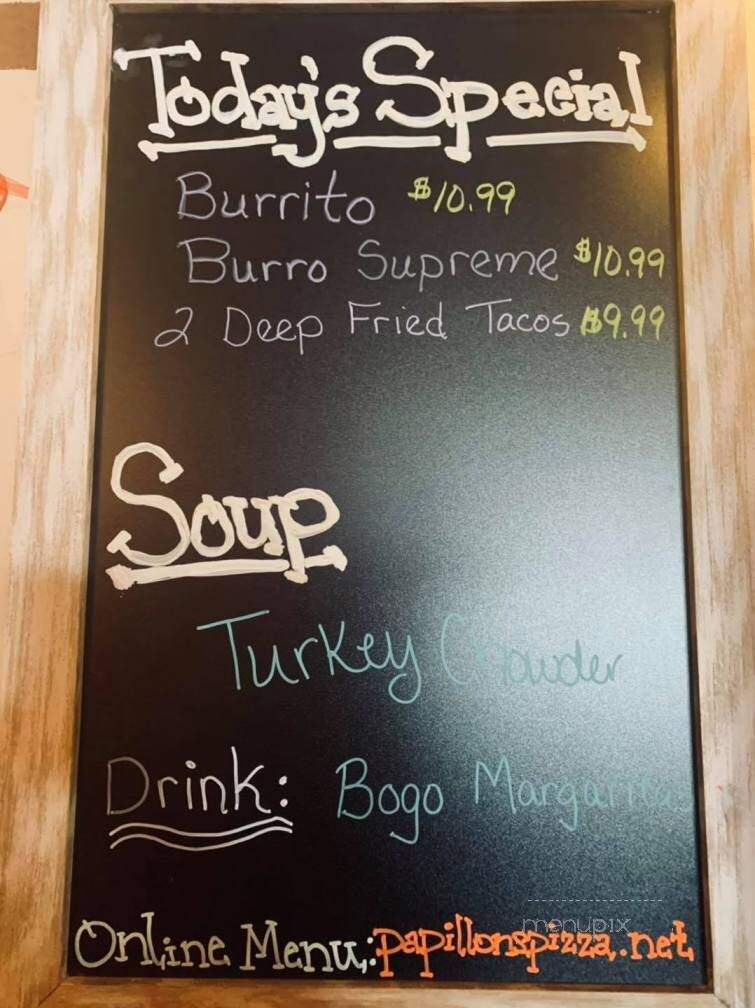 Today's Special
Burrito $10.99
Burro Supreme $10.99
2 Deep Fried Tacos $9.99
Soup
Turkey Chowder
Drink: Bogo Margaritas
menupix
Online Menu: papillonspizza.net